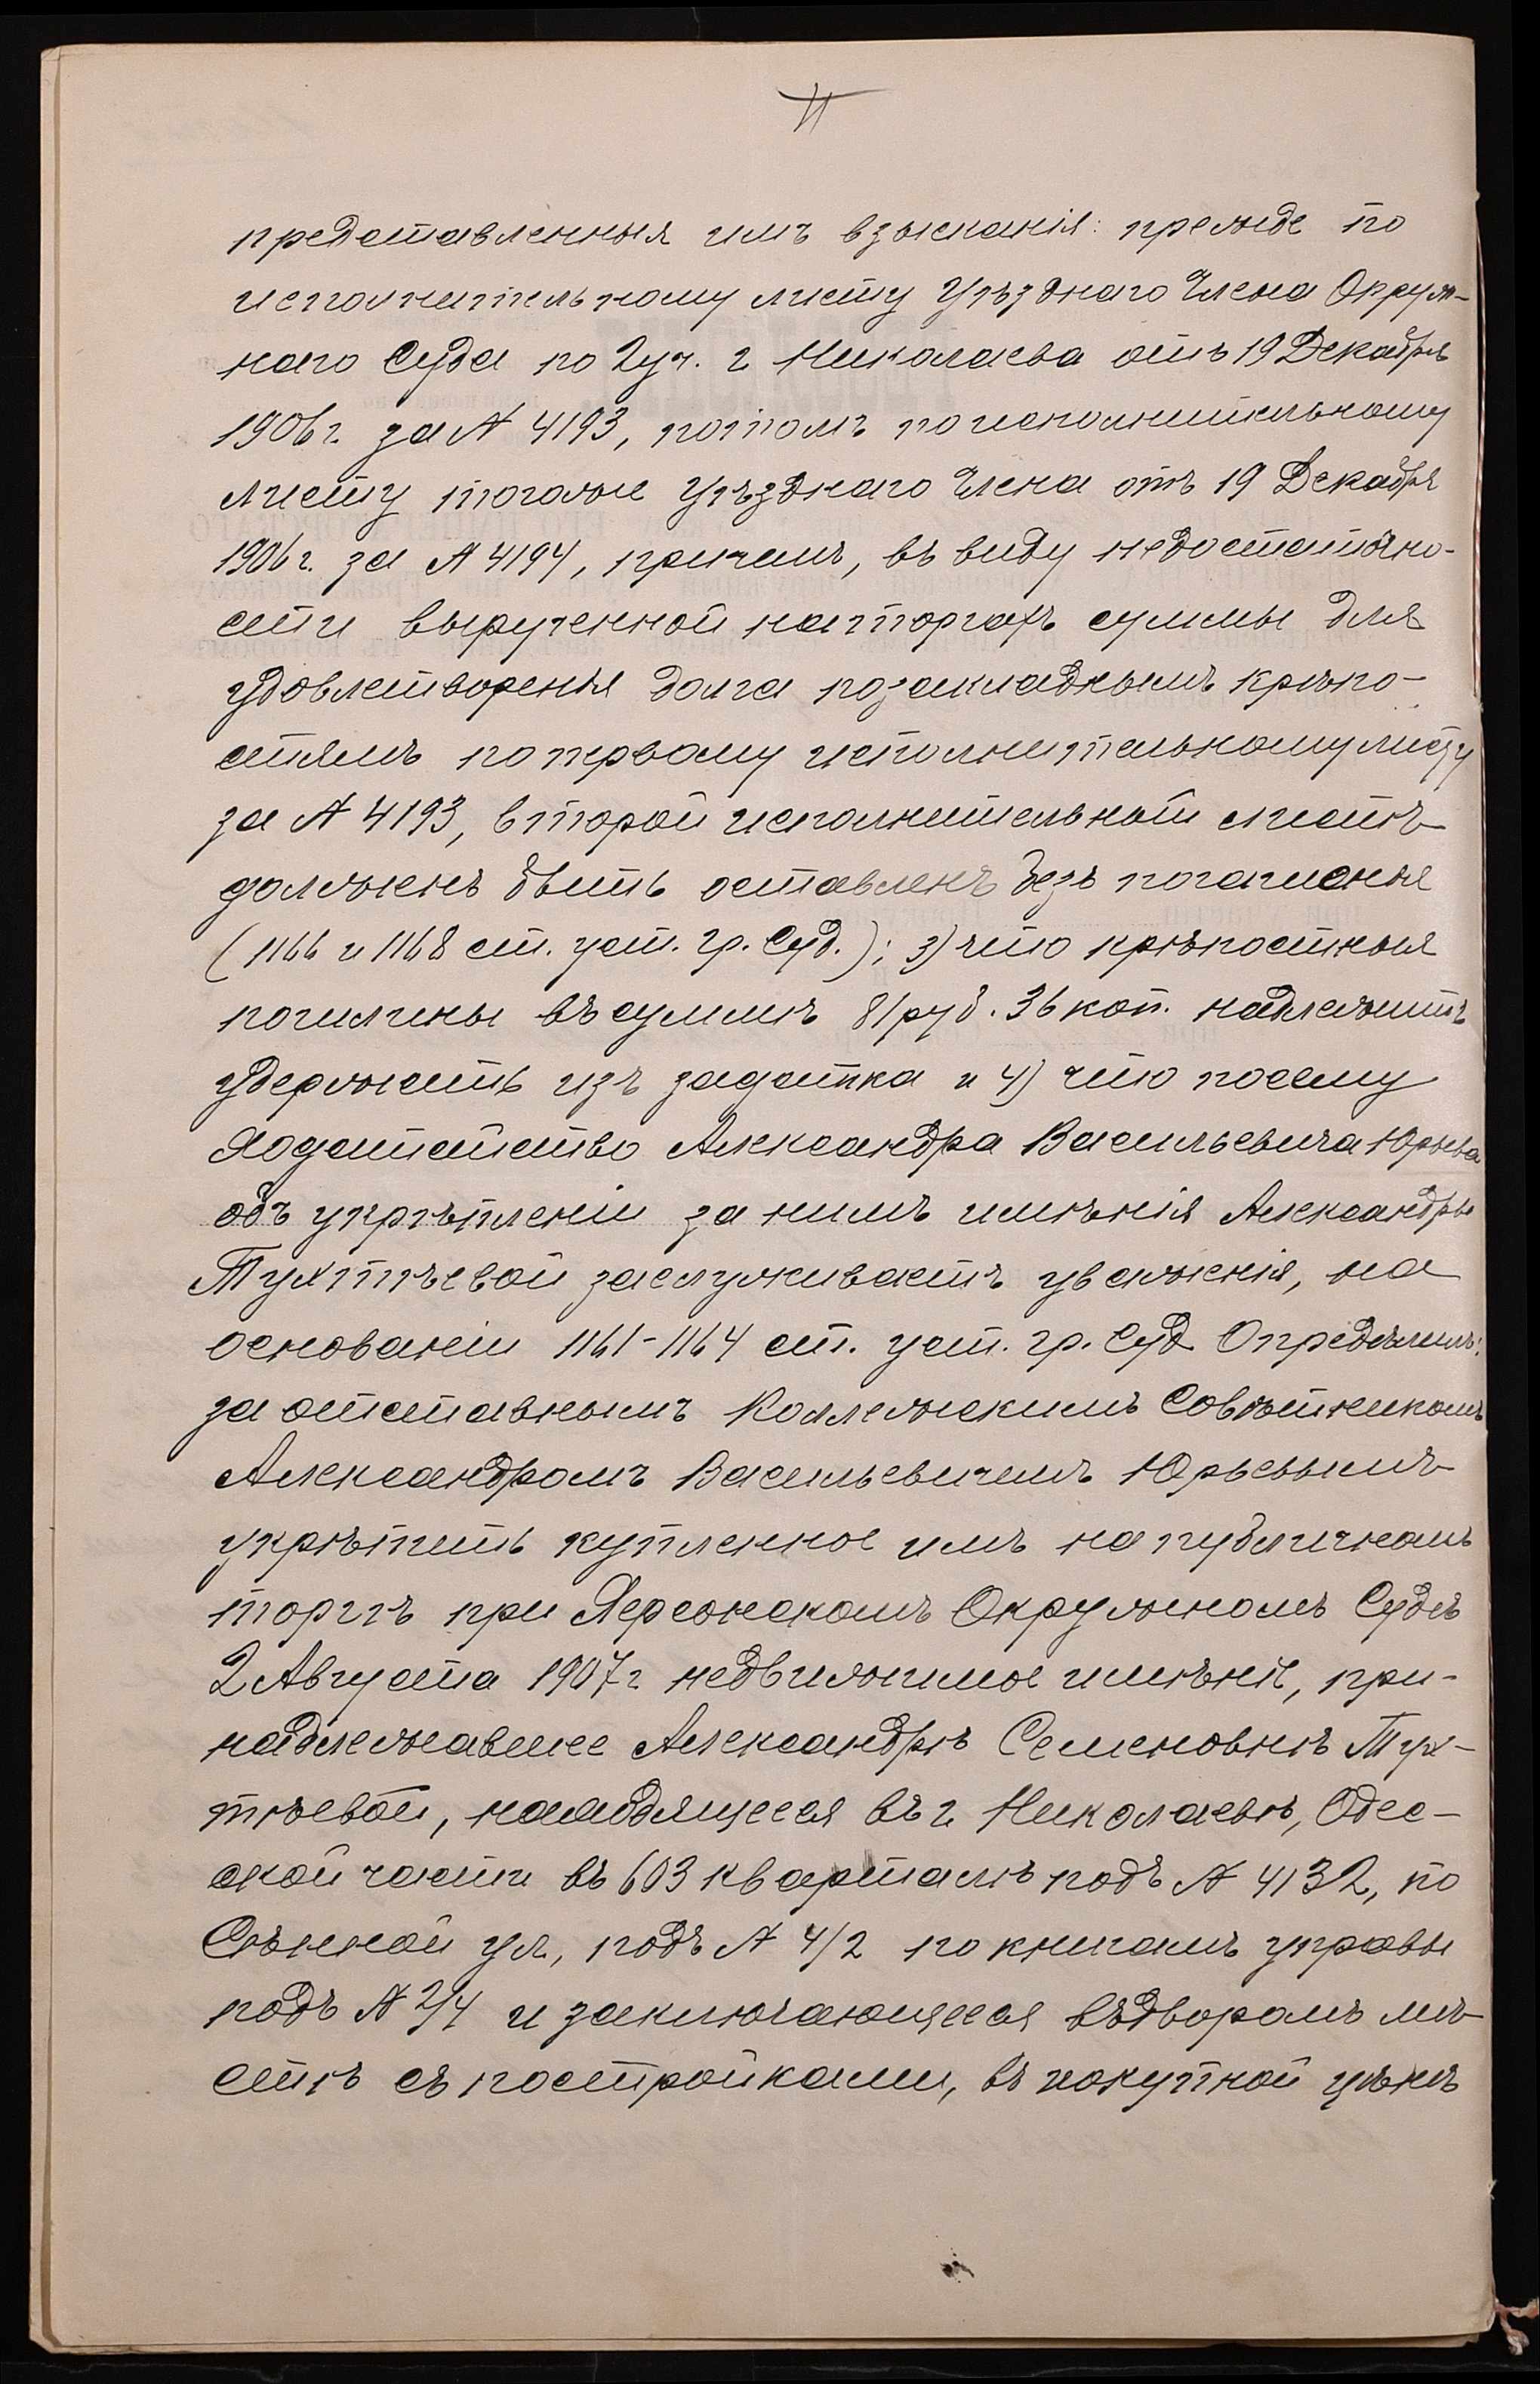 представленныя имъ взысканія: прежде по
исполнительному листу Уѣзднаго Члена Окруж-
наго Суда по 2 уч. г. Николаева отъ 19 Декабря
1906 г. за № 4193, потомъ по исполнительному
листу тогоже Уѣзднаго Члена отъ 19 Декабря
1906 г. за № 4194, причемъ, въ виду недостаточно-
сти вырученной на торгахъ суммы для
удовлетворенія долга по закладнымъ крѣпо-
стямъ по первому исполнительному листу
за № 4193, второй исполнительный листъ
долженъ быть оставленъ безъ погашенія
(1166 и 1168 ст. уст. гр. Суд.); 3) что крѣпостныя
пошлины въ суммѣ 81 руб. 36 коп. надлежитъ
удержать изъ задатка и 4) что посему
ходатайство Александра Васильевича Юрьева
объ укрѣпленіи за нимъ имѣнія Александры
Тухтѣевой заслуживаетъ уваженія, на
основаніи 1161-1164 ст. уст. гр. Суд. Опредѣлилъ:
за отставнымъ Коллежскимъ Совѣтникомъ
Александромъ Васильевичемъ Юрьевымъ
укрѣпить купленное имъ на публичномъ
торгѣ при Херсонскомъ Окружномъ Судѣ
2 Августа 1907 г. недвижимое имѣніе, при-
надлежавшее Александрѣ Семеновнѣ Тух-
тѣевой, находящееся въ г. Николаевѣ, Одес-
ской части въ 603 кварталѣ подъ № 4132, по
Сѣнной ул., подъ № 4/2 по книгамъ управы
подъ № 2/4 и заключающееся въ дворомъ мѣ-
стѣ съ постройками, въ покупной цѣнѣ